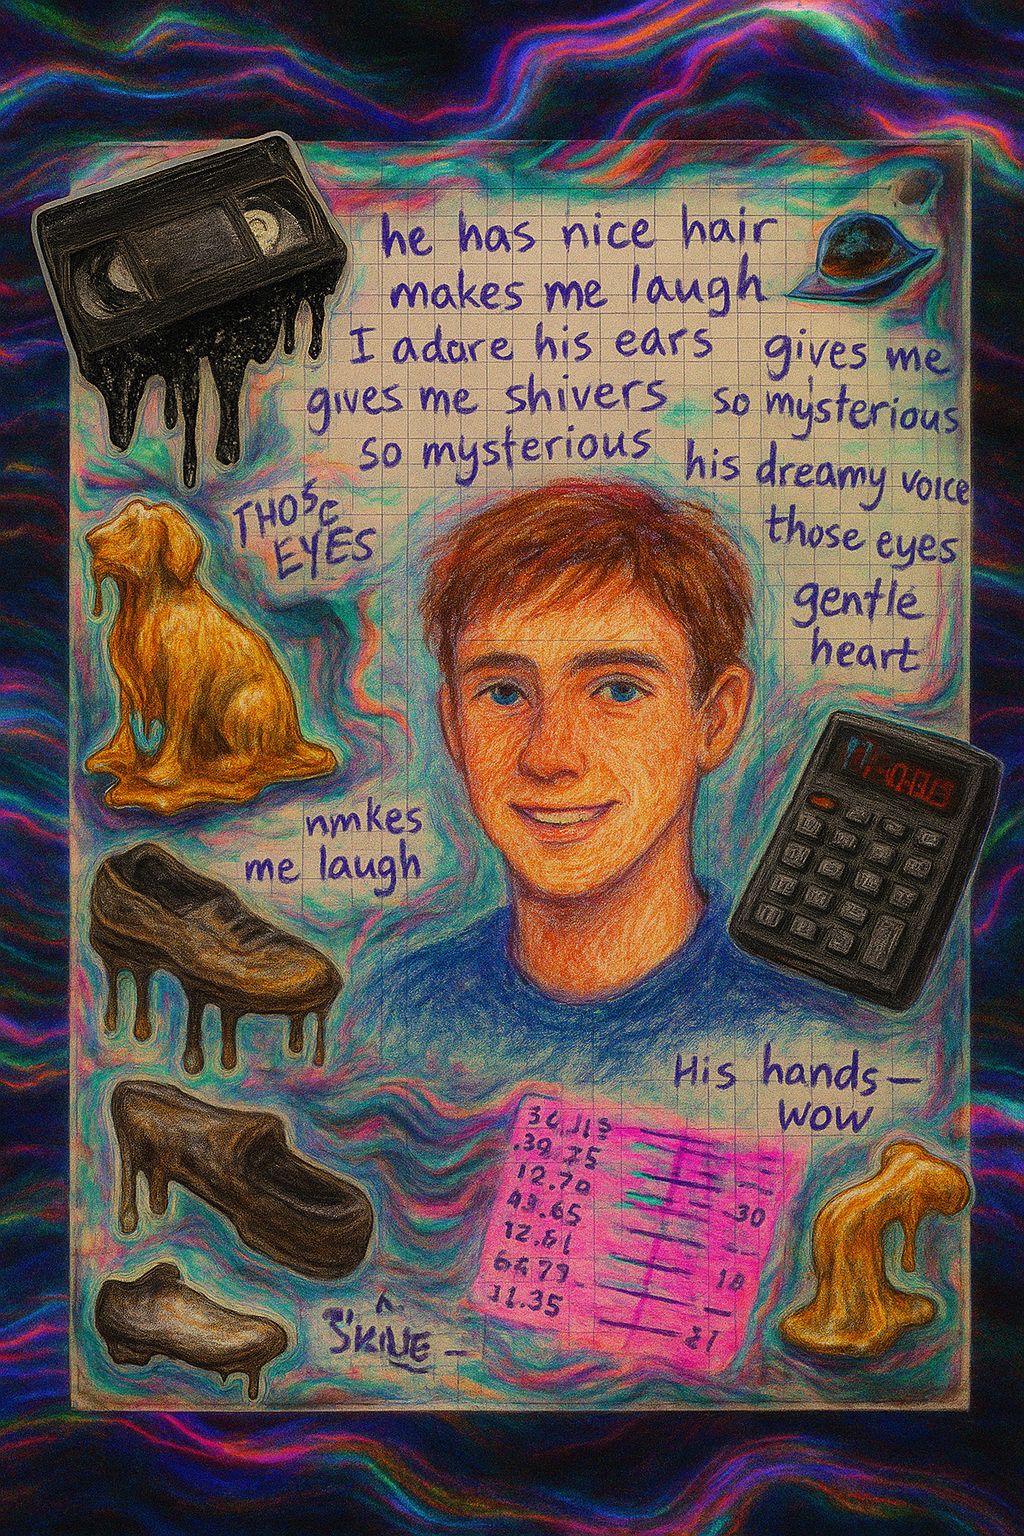 he has nice hair
makes me laugh
I adore his ears
gives me shivers
so mysterious
gives me
so mysterious
his dreamy voice
those eyes
gentle
heart
THOSE
EYES
nmkes
me laugh
His hands—
WOW
12.70
11.35
-30
18
21